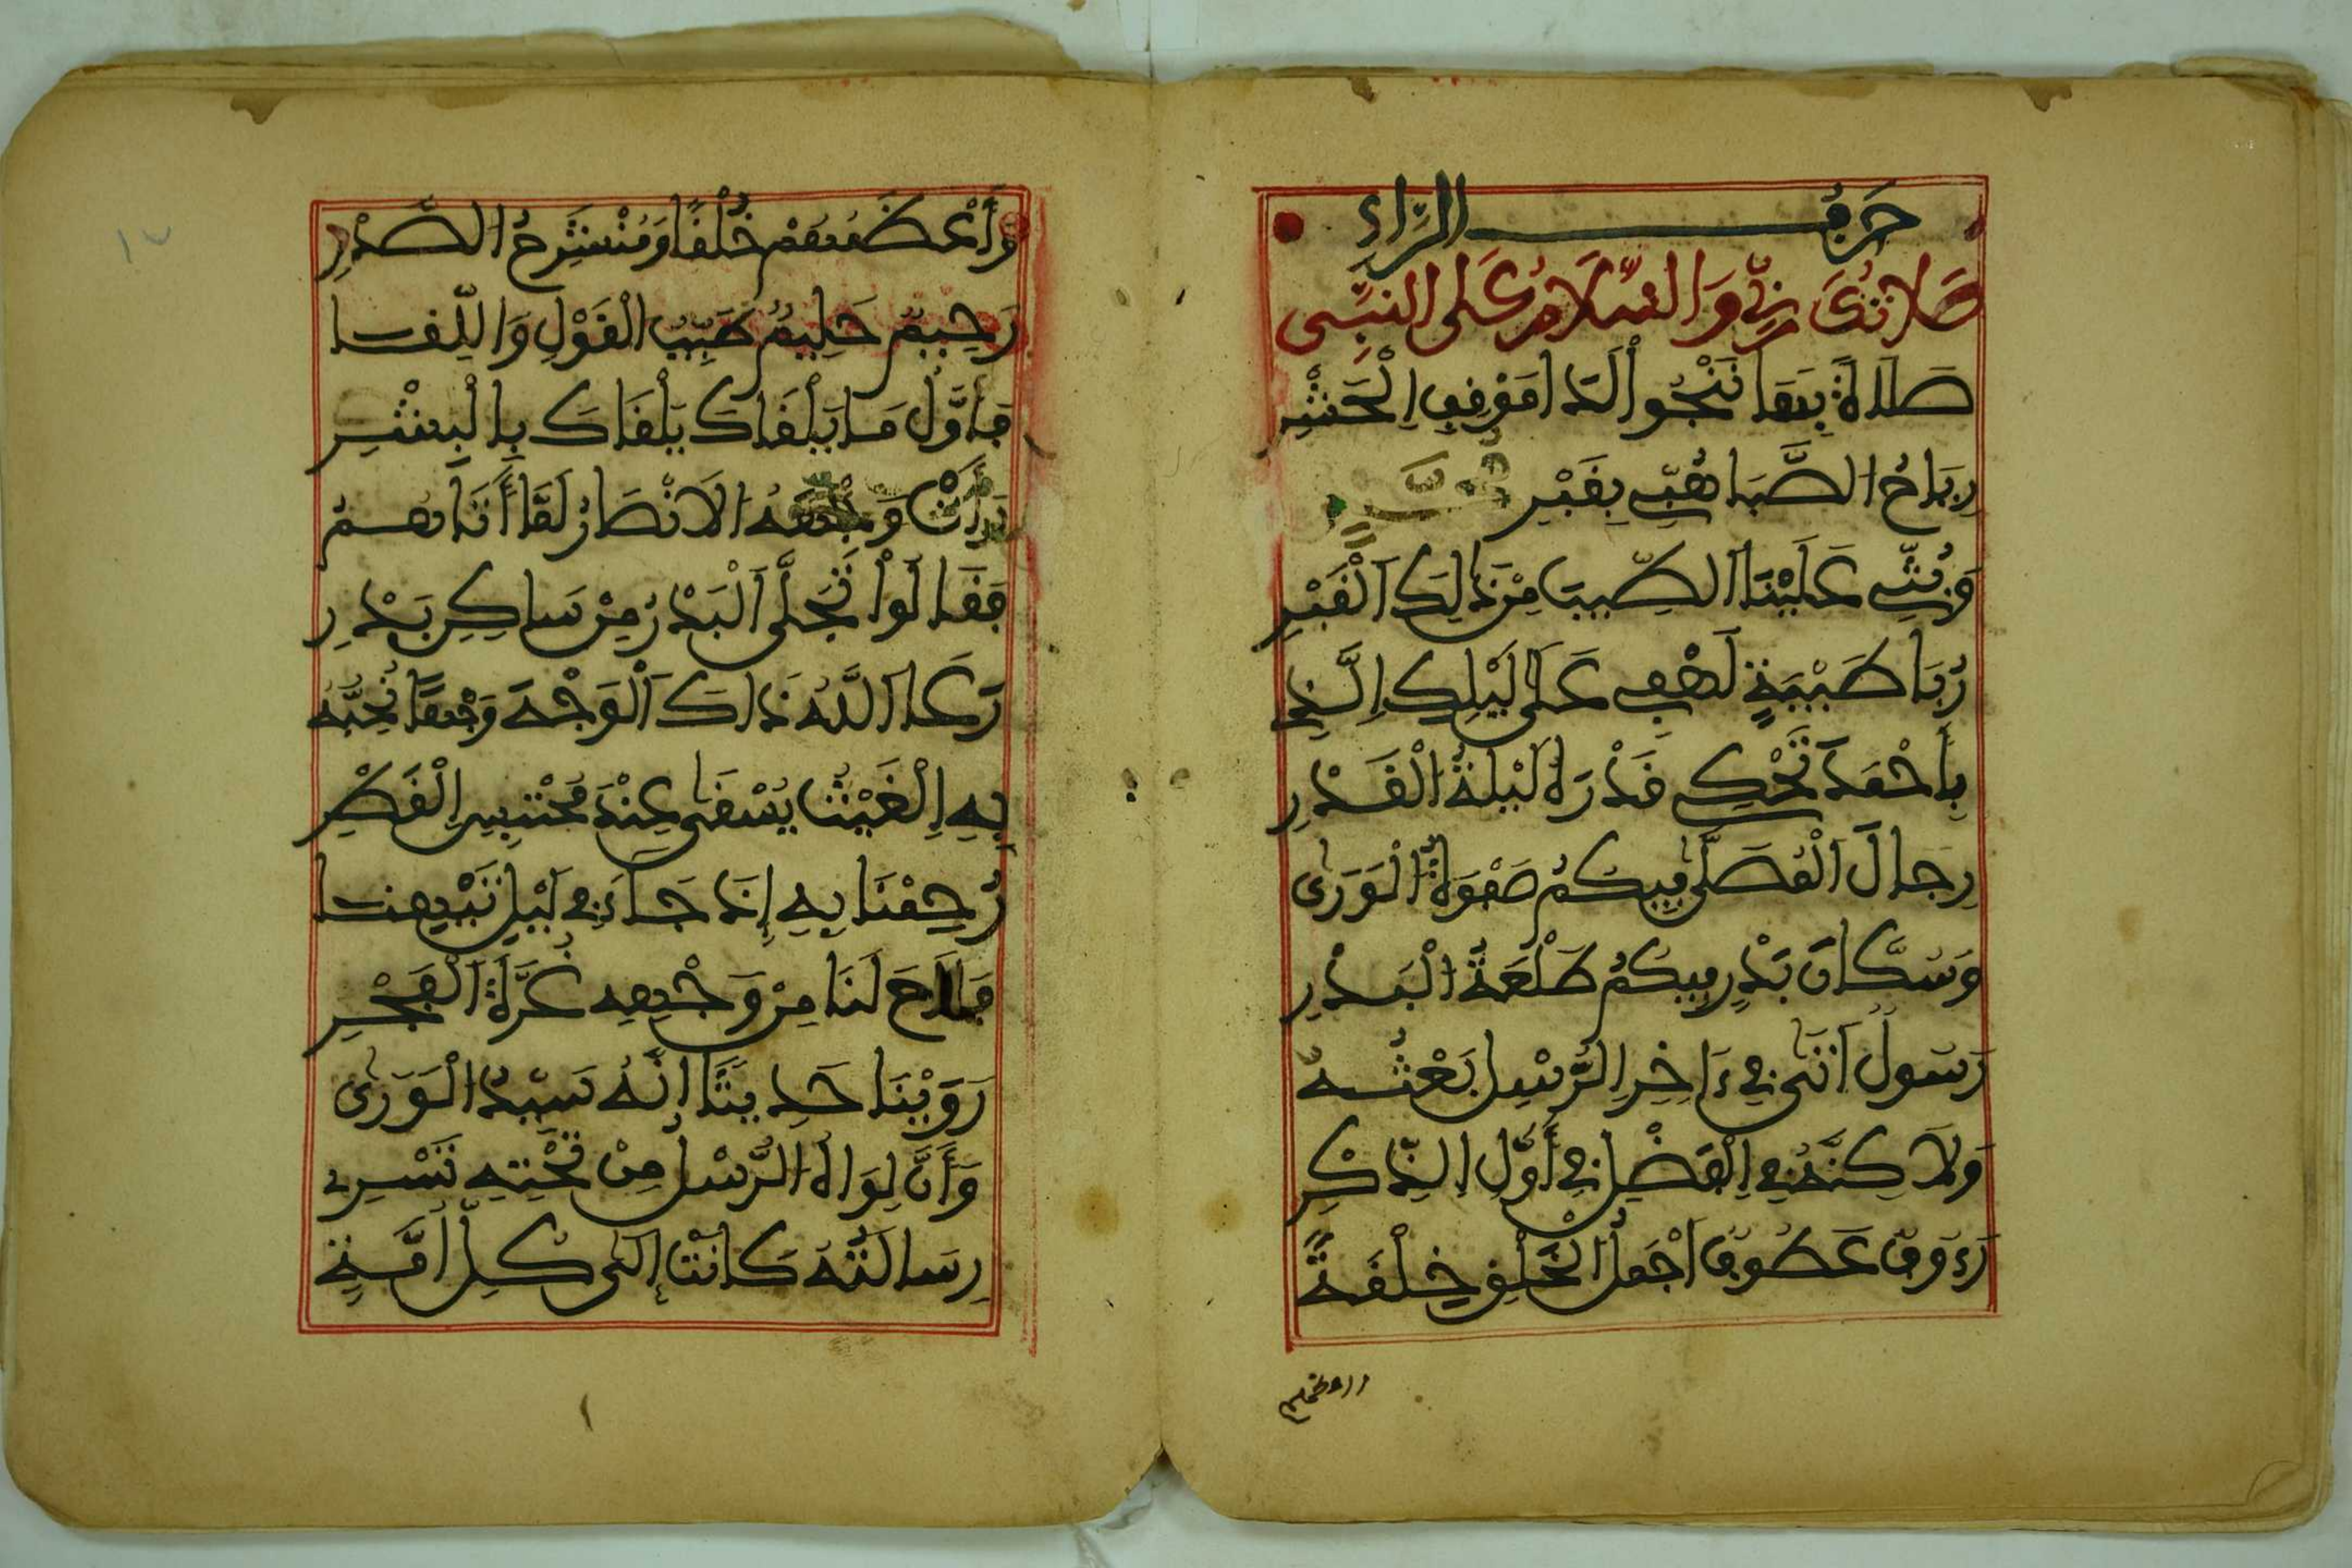 حَرْفُ الرَّاءِ
صَلَاتُكَ رَبِّي وَالسَّلَامُ عَلَى النَّبِيِّ
صَلَاةً بِهَا نَنْجُوا لَدَا مَوْقِفِ الْحَشْرِ
رِيَاحُ الصَّبَا هُبِّي بِقَبْرِ
وَبُثِّي عَلَيْنَا الطِّيبَ مِنْ ذَلِكَ الْقَبْرِ
رُبَا طَيْبَةٍ لَهْفِي عَلَى لَيْلِكِ الَّذِي
بِأَحْمَدَ تَحْكِي قَدْرَهُ لَيْلَةُ الْقَدْرِ
رِجَالَ الْمُصَلَّى فِيكُمُ صَفْوَةُ الْوَرَى
وَسُكَّانَ بَدْرٍ فِيكُمُ طَلْعَةُ الْبَدْرِ
رَسُولٌ أَتَى فِي ءَاخِرِ الرُّسْلِ بَعْثُهُ
وَلَاكِنَّهُ فِي الْفَضْلِ فِي أَوَّلِ الذِّكْرِ
رَءُوفٌ عَطُوفٌ أَجْمَلُ الْخَلْقِ خِلْقَةً
وَأَعْظَمُهُمْ خُلْقًا وَمُنْشَرِحُ الصَّدْرِ
رَحِيمٌ حَلِيمٌ طَيِّبُ الْقَوْلِ وَاللِّقَا
فَأَوَّلُ مَا يَلْقَاكَ يَلْقَاكَ بِالْبِشْرِ
رَأَتْ وَجْهَهُ الْأَنْصَارُ لَمَّا أَتَاهُمُ
فَقَالُوا تَجَلَّى الْبَدْرُ مِنْ سَاكِنِ بَدْرِ
رَعَا اللَّهُ ذَاكَ الْوَجْهَ وَجْهًا نُحِبُّهُ
بِهِ الْغَيْثُ يُسْقَى عِنْدَ مُحْتَبِسِ الْقَطْرِ
رُحِمْنَا بِهِ إِذْ جَاءَ فِي لَيْلِ تِيهِنَا
فَلَاحَ لَنَا مِنْ وَجْهِهِ غُرَّةُ الْفَجْرِ
رَوَيْنَا حَدِيثًا إِنَّهُ سَيِّدُ الْوَرَى
وَأَنَّ لِوَاهُ الرُّسْلُ مِنْ تَحْتِهِ تَسْرِي
رِسَالَتُهُ كَانَتْ إِلَى كُلِّ أُمَّةٍ